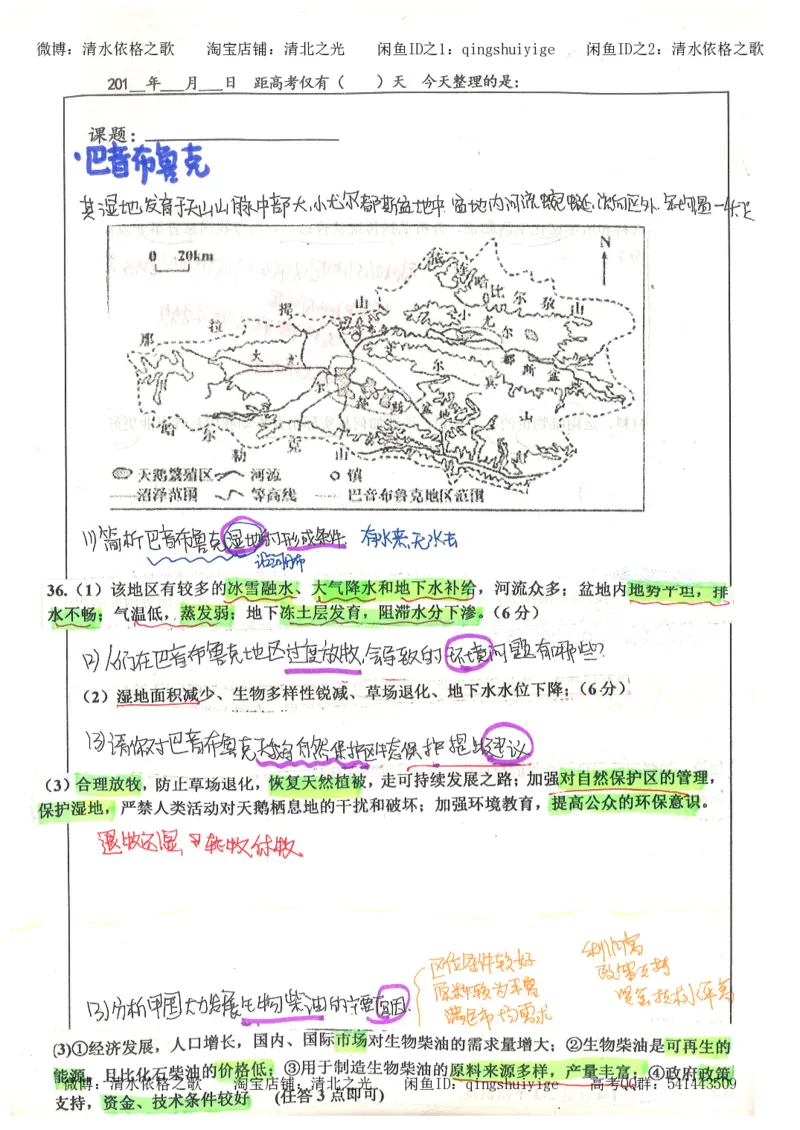 微博：清水依格之歌 淘宝店铺：清北之光 闲鱼ID之1：qingshuiyige 闲鱼ID之2：清水依格之歌
201__年___月___日 距高考仅有（ ）天 今天整理的是：
课题：
·巴音布鲁克
其湿地发育于天山山脉中部大、小尤尔都斯盆地中. 盆地内河流蜿蜒,
0 20km
N
依连哈比尔尕山
那拉提山
小尤尔都斯盆地
大尤尔都斯盆地
艾尔宾山
哈尔克山
天鹅繁殖区 河流 镇
沼泽范围 等高线 巴音布鲁克地区范围
(1)简析巴音布鲁克湿地的形成条件 有水来,无水去
沿河分布
36.（1）该地区有较多的冰雪融水、大气降水和地下水补给，河流众多；盆地内地势平坦，排
水不畅；气温低，蒸发弱；地下冻土层发育，阻滞水分下渗。（6 分）
(2)人们在巴音布鲁克地区过度放牧,会导致的环境问题有哪些?
（2）湿地面积减少、生物多样性锐减、草场退化、地下水水位下降；（6 分）
(3)请你对巴音布鲁克天鹅自然保护区生态保护提出建议
（3）合理放牧，防止草场退化，恢复天然植被，走可持续发展之路；加强对自然保护区的管理，
保护湿地，严禁人类活动对天鹅栖息地的干扰和破坏；加强环境教育，提高公众的环保意识。
退牧还湿 轮牧休牧
区位条件较好
原料较为丰富
满足市场需求
利润高
政策支持
资金技术水平高
(3)分析中国大力发展生物柴油的主要原因.
(3)①经济发展，人口增长，国内、国际市场对生物柴油的需求量增大；②生物柴油是可再生的
能源，且比化石柴油的价格低；③用于制造生物柴油的原料来源多样，产量丰富；④政府政策
微博：清水依格之歌 淘宝店铺：清北之光 闲鱼ID：qingshuiyige 高考QQ群：541443509
支持，资金、技术条件较好 (任答 3 点即可)